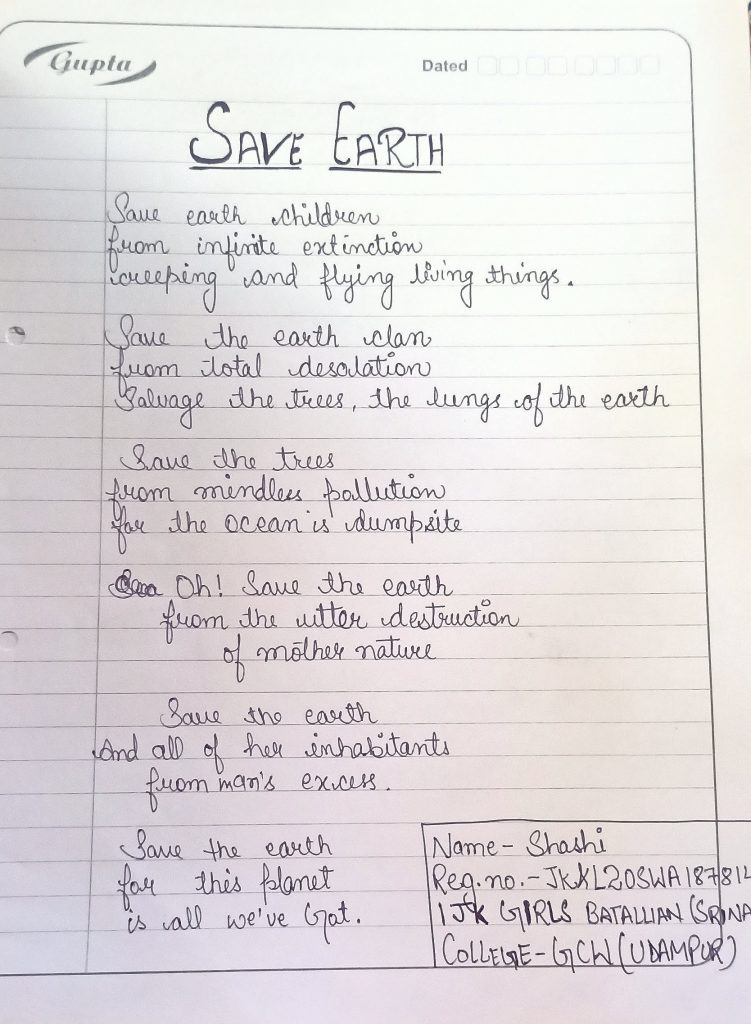 Gupta
Dated
SAVE EARTH
Save earth children
from infinite extinction
creeping and flying living things.
Save the earth clan
from total desolation
Salvage the trees, the lungs of the earth
Save the trees
from mindless pollution
for the ocean is dumpsite
Oh! Save the earth
from the utter destruction
of mother nature
Save the earth
And all of her inhabitants
from man's excess.
Save the earth
for this planet
is all we've Got.
Name - Shashi
Reg. no. - JKKL20SWA187812
1 J&K GIRLS BATALLIAN (SRINA
COLLEGE - GCW (UDAMPUR)